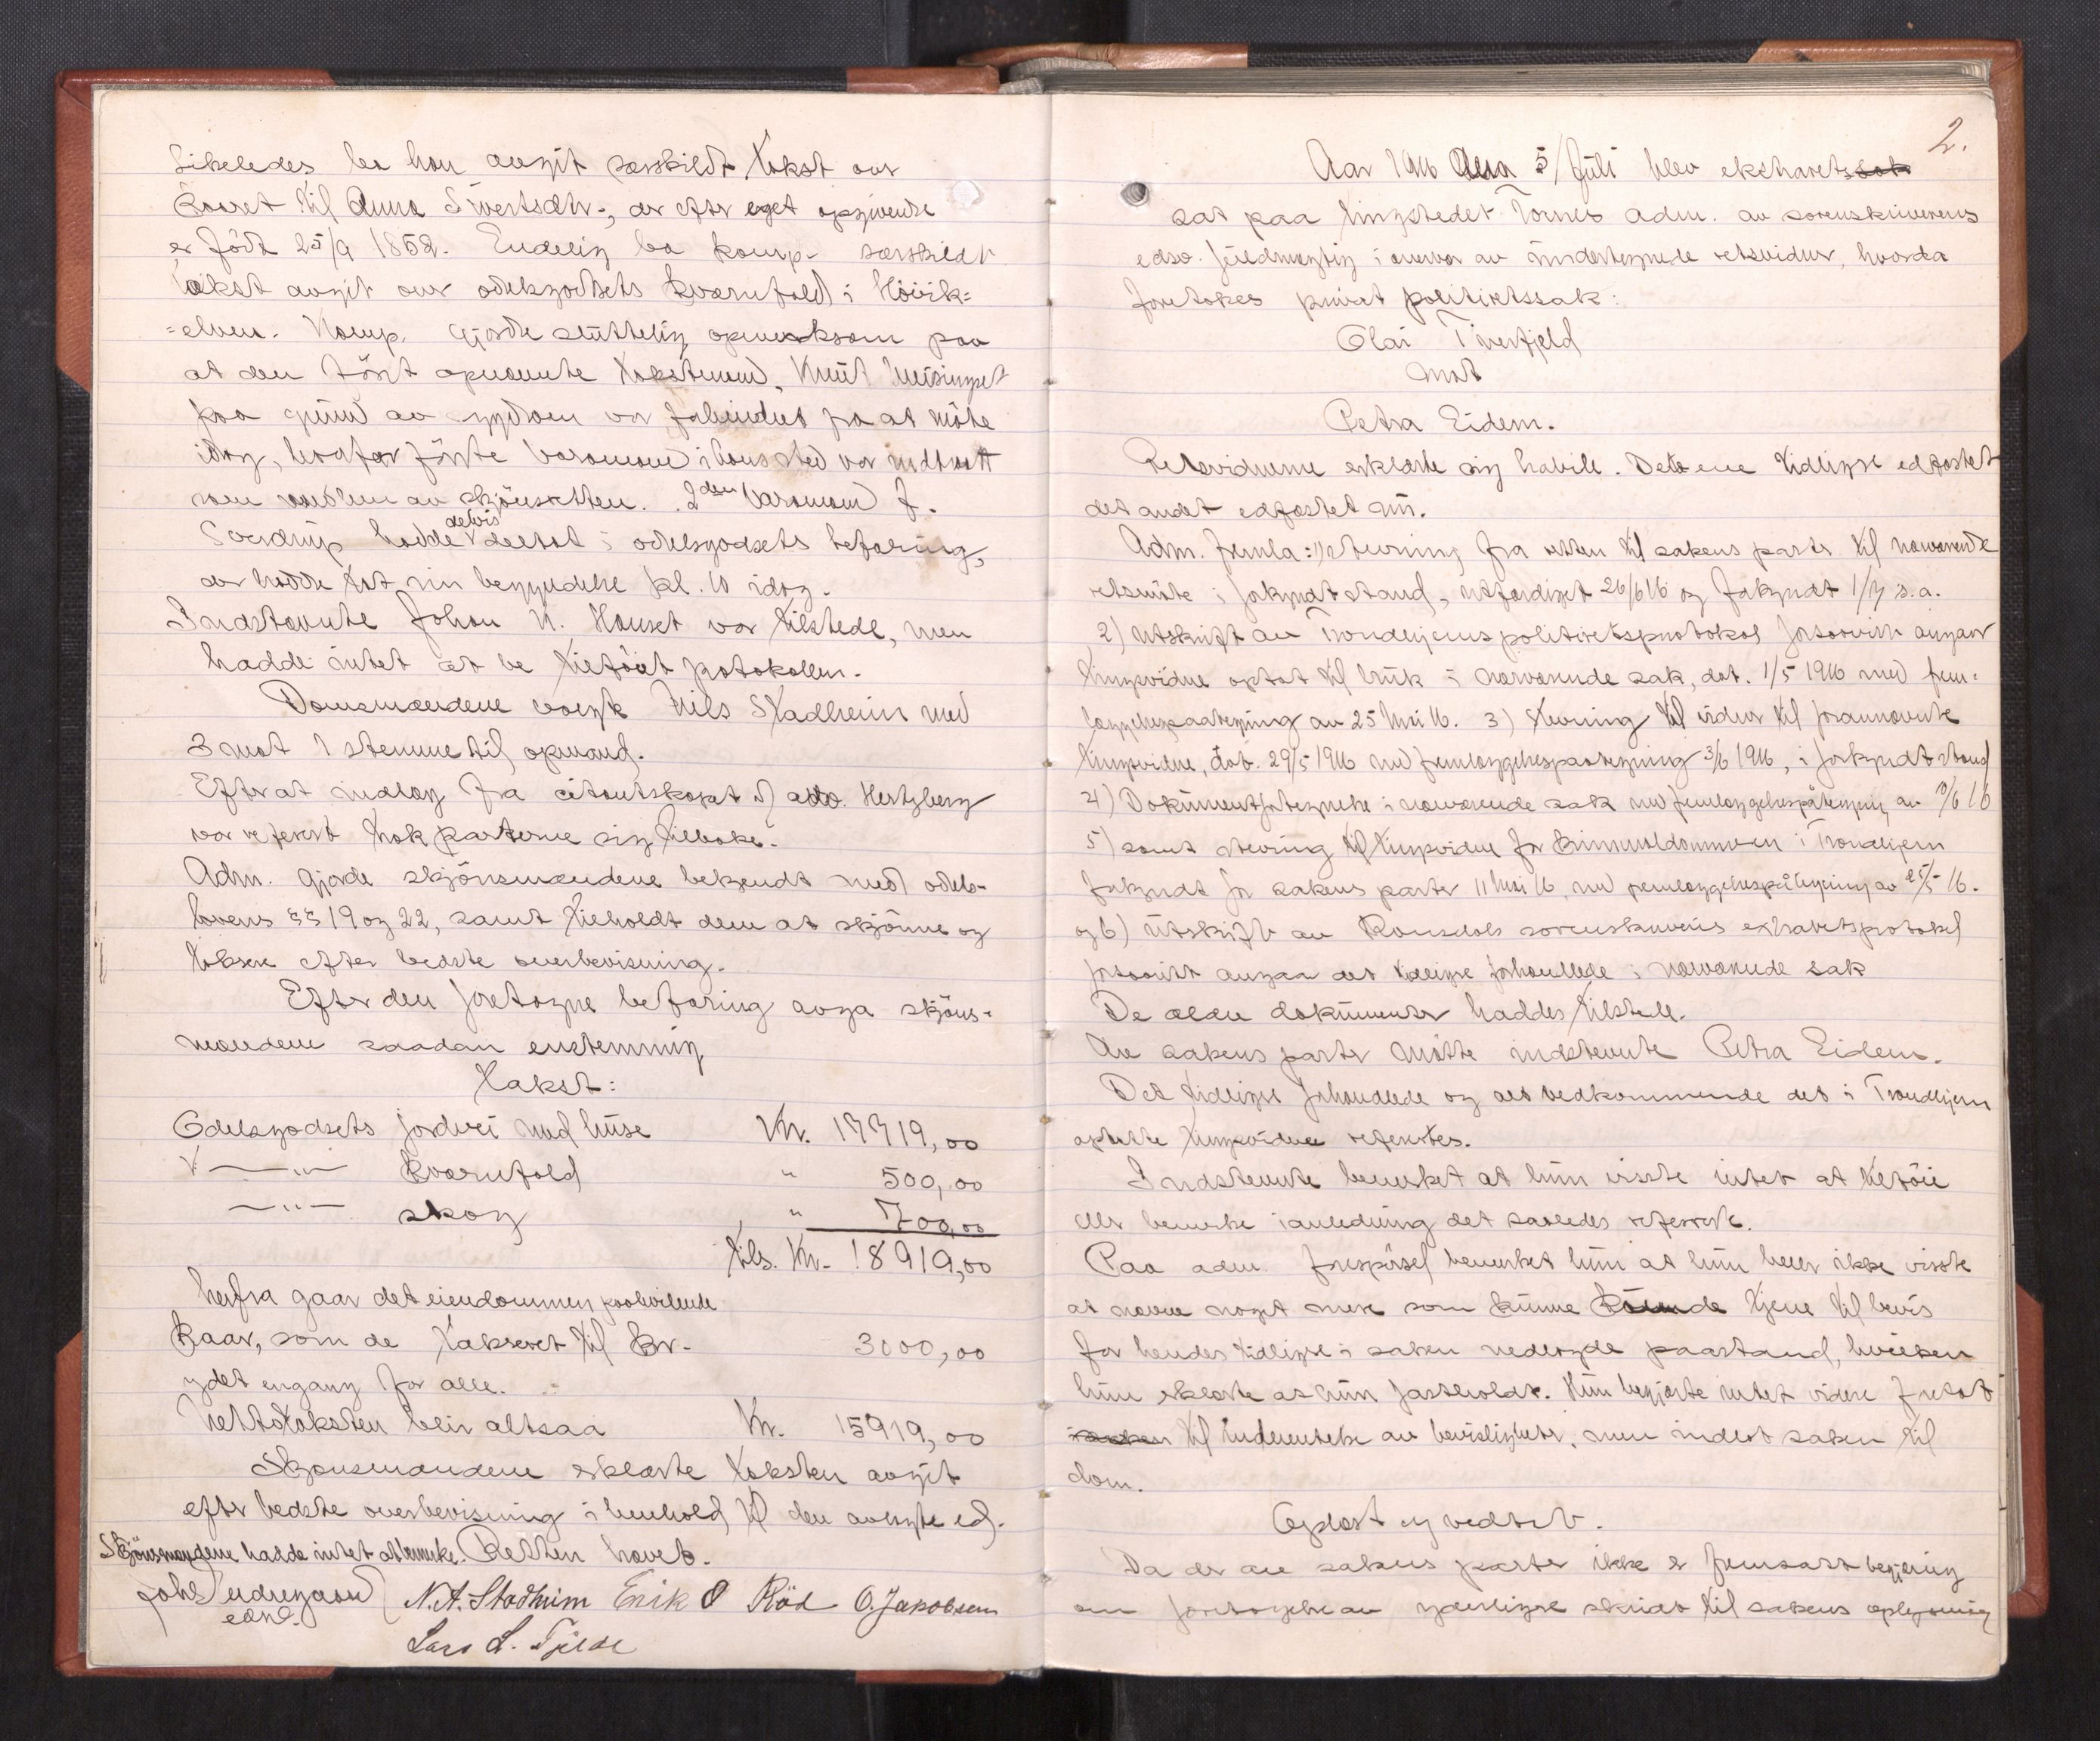 Likeledes ba han avgit særskildt takst over
kaaret til Anna Sivertsdtr., der efter eget opgivende
er födt 25/9 1852. Endelig ba komp. særskildt
takst avgit over odelsgodsets kværnfald i Hövik=
=elven. Komp. gjorde sluttelig opmerksom paa
at den först opnævnte takstmand, Knut
paa grund av sygdom var forhindret fra at möte
idag, hvorfor förste varamand i hans sted var indkaldt
som medlem av skjönsretten. 2den varamand J.
Sverdrup hadde delvis deltat i odelsgodsets befaring,
der hadde tat sin begyndelse kl. 10 idag.
Indstevnte Johan N. Hauset var tilstede, men
hadde intet at be tilföiet protokollen.
Domsmændene valgte Nils Stadheim med
3 mot 1 stemme til opmand.
Efterat indlæg fra citantskapet v/ adv. Hertzberg
var referert trak parterne sig tilbake.
Adm. gjorde skjönsmændene bekjendt med odels-
lovens §§ 19 og 22, samt tilholdt dem at skjönne og
taksere efter bedste overbevisning.
Efter den foretagne befaring avga skjöns-
mændene saadan enstemmig
Takst:
Odelsgodsets jordvei med huse Kr. 17719,00
—"— kværnfald " 500,00
—"— skog " 700,00
tils. Kr. 18919,00
herfra gaar det eiendommen paahvilende
kaar, som de taksert til Kr. 3000,00
ydet engang for alle.
Nettotaksten blir altsaa Kr. 15919,00
Skjönsmændene erklærte taksten avgit
efter bedste overbevisning i henhold til den avlagte ed.
Skjönsmændene hadde intet at bemerke. Retten hævet.
N. A. Stadheim Erik O Röd O. Jakobsen
edsv.
Lars L. Tjelde
2.
Aar 1916 den 5/ juli blev ekstraret
sat paa tingstedet Tornes adm. av sorenskriverens
edsv. fuldmægtig i overvær av undertegnede retsvidner, hvorda
foretokes privat politiretssak:
Olai Tverfjeld
mot
Petra Eidem.
Retsvidnerne erklærte sig habile. Det ene tidligere edfæstet
det andet edfæstet nu.
Adm. fremla: 1) stevning fra retten til sakens parter til nærværende
retsmöte i forkyndt stand, utfærdiget 26/6 16 og forkyndt 1/7 s.a.
2) Utskrift av Trondhjems politiretsprotokol forsaavidt angaar
tingsvidne optat til bruk i nærværende sak, dat. 1/5 1916 med frem-
læggelsespaategning av 25 mai 16. 3) stevning til vidner til forannævnte
tingsvidne, dat. 29/5 1916 med fremlæggelsespaategning 3/6 1916, i forkyndt stand
4) Dokumentfortegnelse i nærværende sak med fremlæggelsespåtegning av 10/6 16
5) samt stevning til tingsvidne for Brimnaldommeren i Trondhjem
forkyndt for sakens parter 11 mai 16, med fremlæggelsespåtegning av 25/5 16.
og 6) Utskrift av Romsdals sorenskriveris extraretsprotokol
forsaavidt angaar det tidligere forhandlede i nærværende sak
De ældre dokumenter haddes tilstede.
Av sakens parter mötte indstevnte Petra Eidem.
Det tidligere forhandlede og alt vedkommende det i Trondhjem
optatte tingsvidne refereredes.
Indstevnte bemerket at hun visste intet at tilföie
eller bemerke i anledning det saaledes refererte.
Paa adm. forespörsel bemerket hun at hun heller ikke visste
at nævne noget mere som kunne tjene til bevis
for hendes tidligere i saken nedlagde paastand, hvilken
hun erklærte at hun fastholdt. Hun begjærte intet videre foretat
til indhentelse av bevisligheter, men indlot saken til
dom.
Oplæst og vedtat.
Da der av sakens parter ikke er fremsat begjæring
om foretagelse av yderligere skridt til sakens oplysning